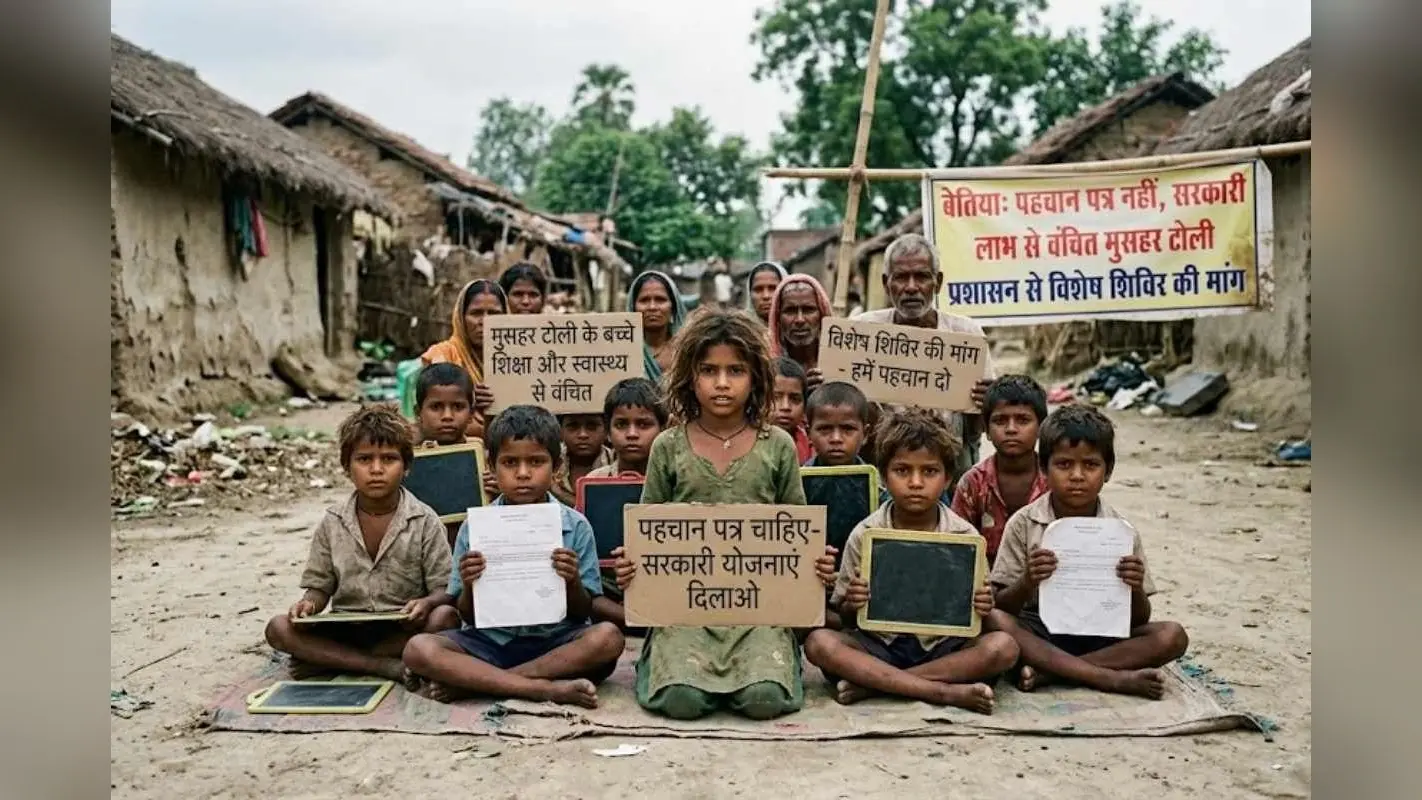 बेतियाः पहचान पत्र नहीं, सरकारी
लाभ से वंचित मुसहर टोली
प्रशासन से विशेष शिविर की मांग
मुसहर टोली के बच्चे
शिक्षा और स्वास्थ्य
से वंचित
विशेष शिविर की मांग
- हमें पहचान दो
पहचान पत्र चाहिए-
सरकारी योजनाएं
दिलाओ